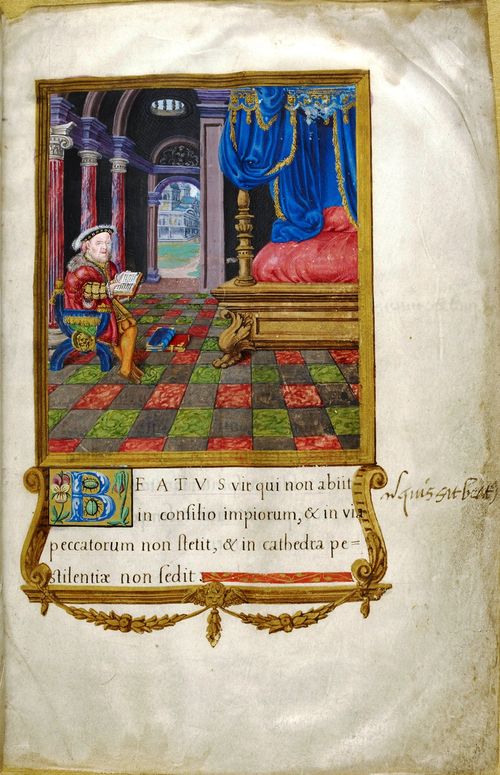 BEATVS vir qui non abiit
in consilio impiorum, & in via
peccatorum non stetit, & in cathedra pe=
stilentiæ non sedit.
quis sit